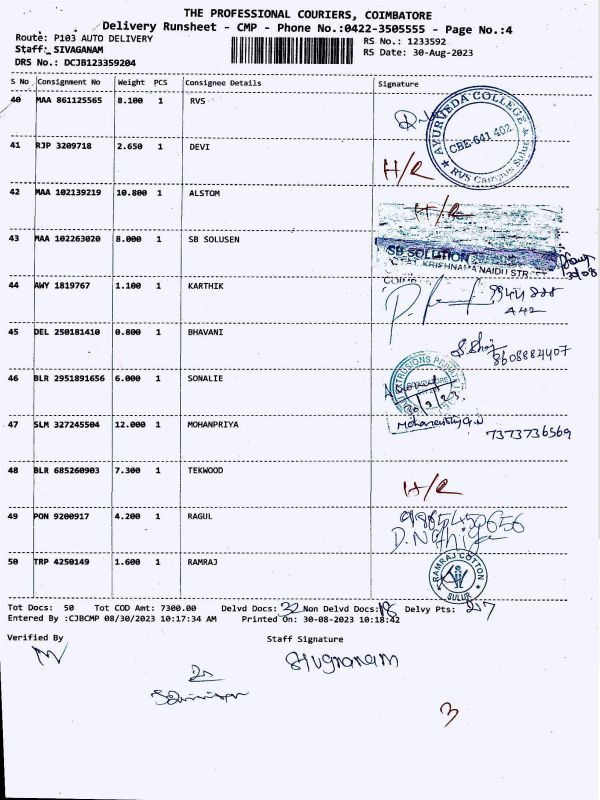 THE PROFESSIONAL COURIERS, COIMBATORE
Delivery Runsheet - CMP - Phone No.:0422-3505555 - Page No.:4
Route: P103 AUTO DELIVERY
RS No.: 1233592
Staff: SIVAGANAM
RS Date: 30-Aug-2023
DRS No.: DCJB123359204
S No Consignment No Weight PCS Consignee Details Signature
40 MAA 861125565 8.100 1 RVS
AYURVEDA COLLEGE
CBE-641 402
RVS Campus Sulur
41 RJP 3209718 2.650 1 DEVI H/R
42 MAA 102139219 10.800 1 ALSTOM H/R
43 MAA 102263020 8.000 1 SB SOLUSEN
SB SOLUTION
KRISHNAMA NAIDU STR
44 AWY 1819767 1.100 1 KARTHIK
A42
45 DEL 250181410 0.800 1 BHAVANI
8608884407
46 BLR 2951891656 6.000 1 SONALIE
47 SLM 327245504 12.000 1 MOHANPRIYA
7373736569
48 BLR 685260903 7.300 1 TEKWOOD H/R
49 PON 9200917 4.200 1 RAGUL
50 TRP 4250149 1.600 1 RAMRAJ
RAMRAJ COTTON
SULUR
Tot Docs: 50 Tot COD Amt: 7300.00 Delvd Docs: 32 Non Delvd Docs: 18 Delvy Pts: 27
Entered By :CJBCMP 08/30/2023 10:17:34 AM Printed On: 30-08-2023 10:18:42
Verified By Staff Signature
3